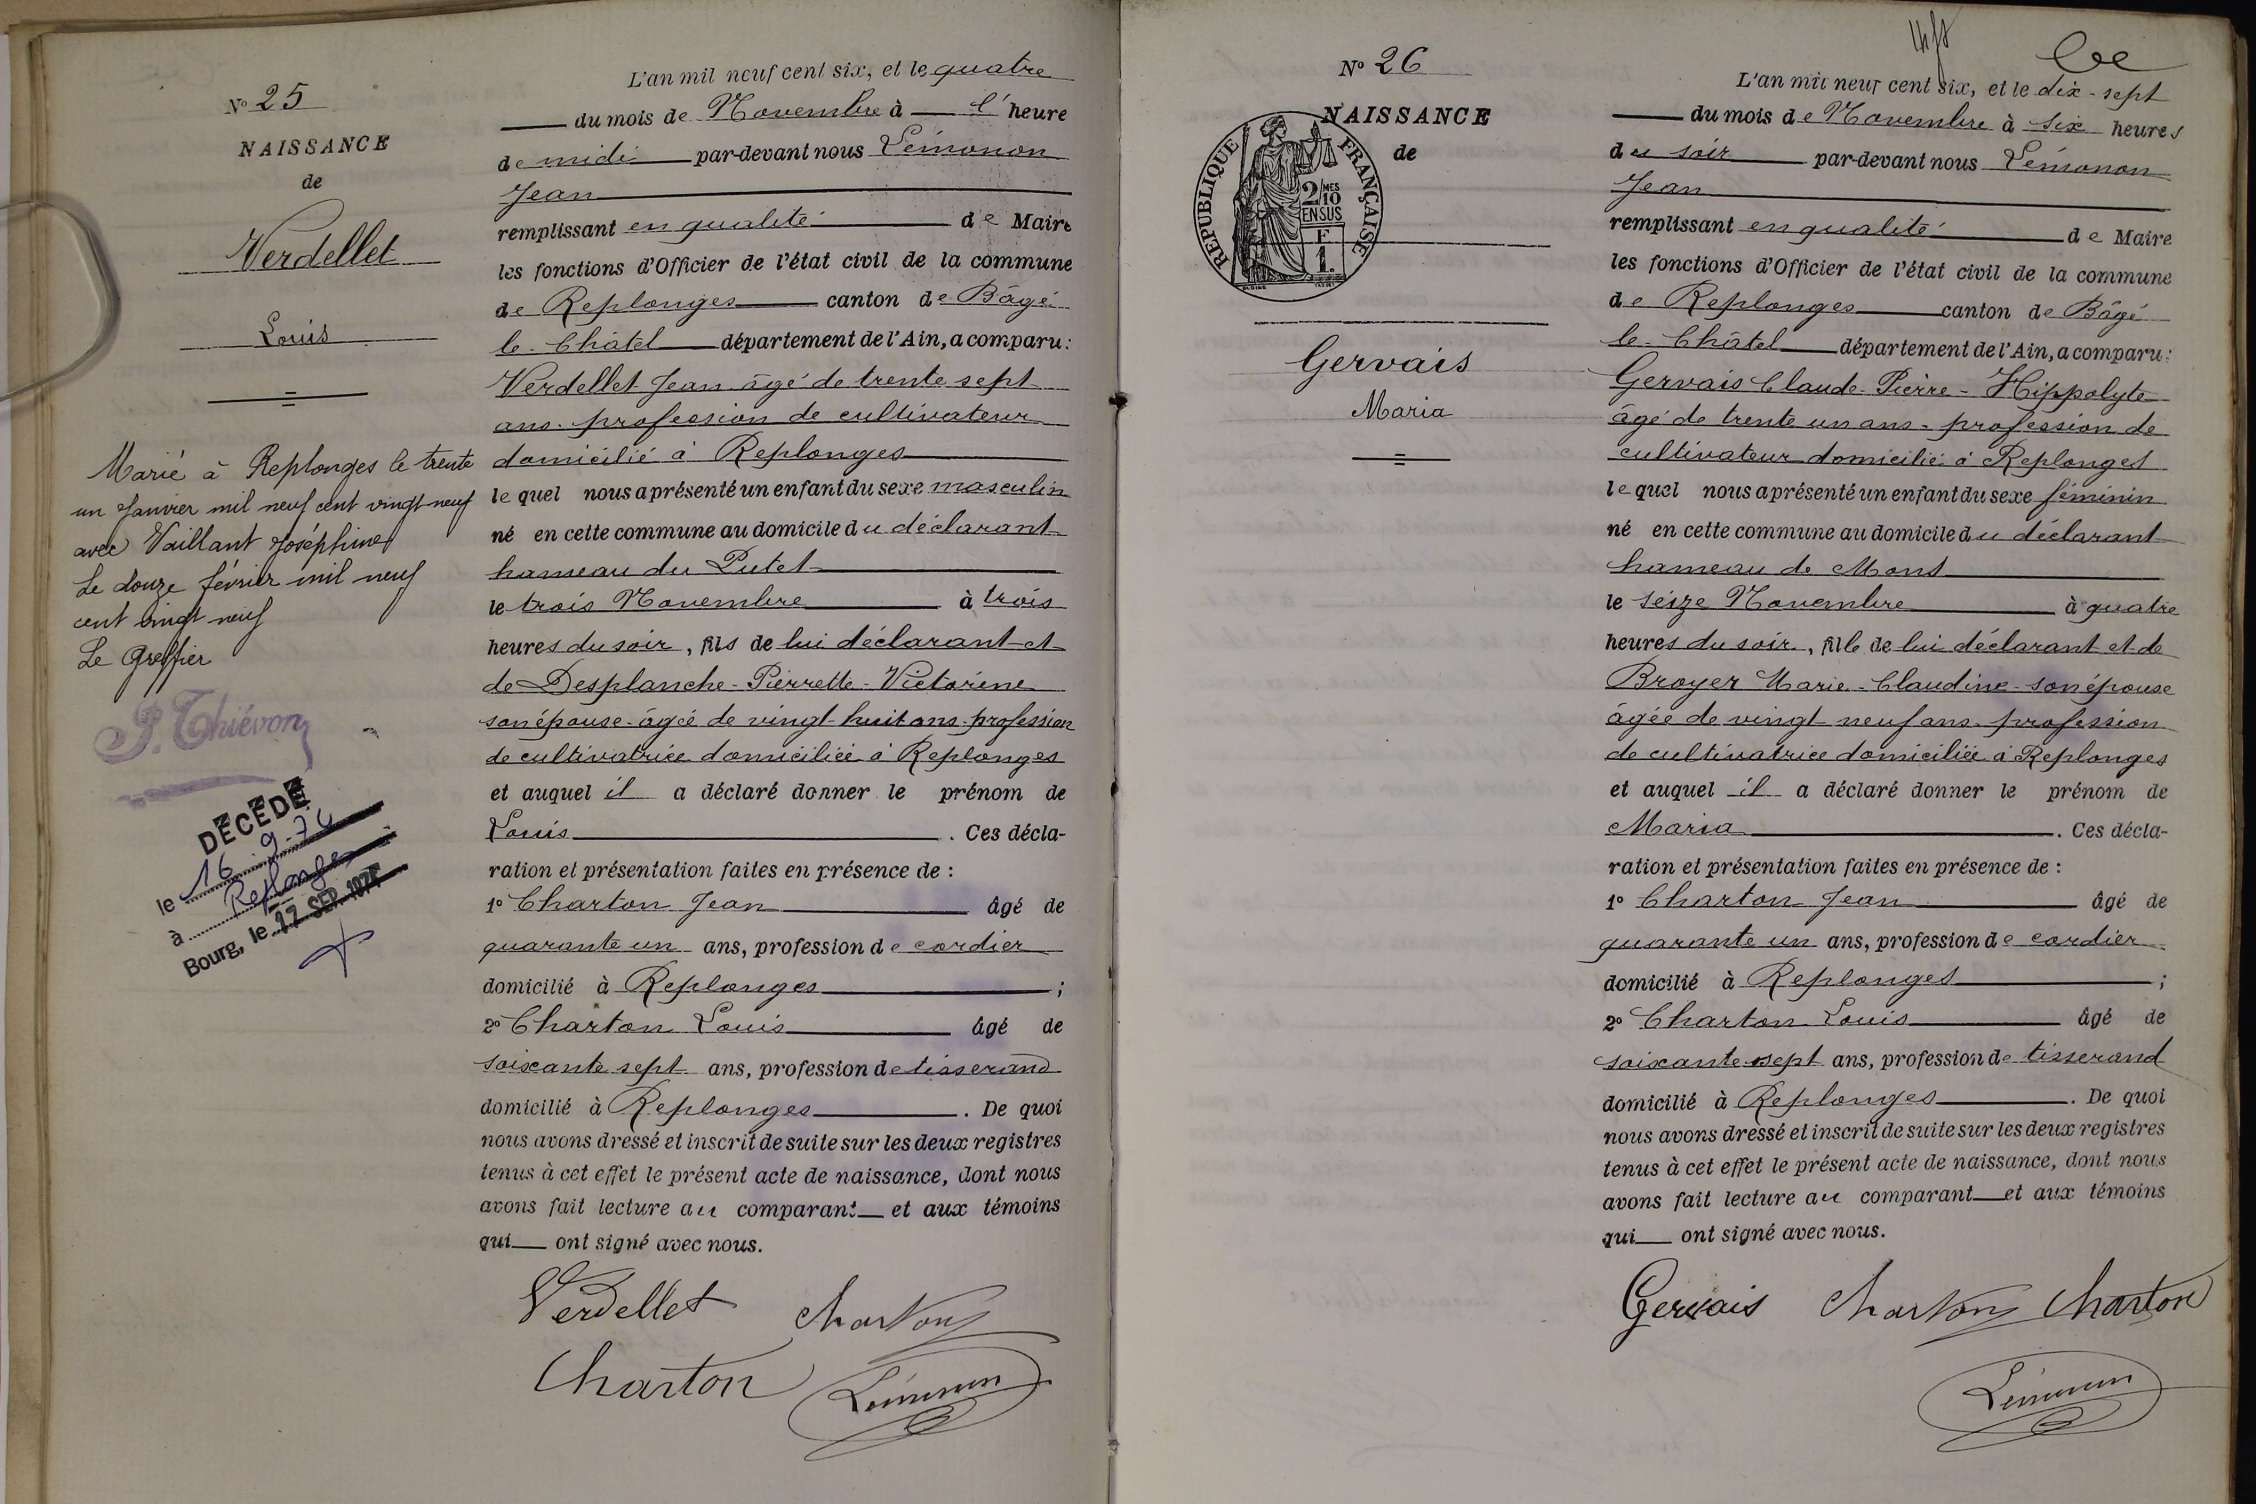 N° 25
NAISSANCE
de
Verdellet
Louis
Marié à Replonges le trente
un Janvier mil neuf cent vingt neuf
avec Vaillant Joséphine
Le douze février mil neuf
cent vingt neuf
Le Greffier
P. Thiévon
DÉCÉDÉ
le 16-9-76
à Replonges
Bourg, le 17 SEP. 1976
L'an mil neuf cent six, et le quatre
du mois de Novembre à l'heure
de midi par-devant nous Lémonon
Jean
remplissant en qualité de Maire
les fonctions d'Officier de l'état civil de la commune
de Replonges canton de Bâgé
le Châtel département de l'Ain, a comparu:
Verdellet Jean âgé de trente sept
ans. profession de cultivateur
domicilié à Replonges
le quel nous a présenté un enfant du sexe masculin
né en cette commune au domicile du déclarant
hameau du Putet
le trois Novembre à trois
heures du soir, fils de lui déclarant et
de Desplanche-Pierrette-Victorine
son épouse-âgée de vingt-huit ans-profession
de cultivatrice domiciliée à Replonges
et auquel il a déclaré donner le prénom de
Louis. Ces décla-
ration et présentation faites en présence de :
1° Charton Jean âgé de
quarante un ans, profession de cordier
domicilié à Replonges ;
2° Charton Louis âgé de
soixante sept ans, profession de tisserand
domicilié à Replonges. De quoi
nous avons dressé et inscrit de suite sur les deux registres
tenus à cet effet le présent acte de naissance, dont nous
avons fait lecture au comparant et aux témoins
qui ont signé avec nous.
Verdellet Charton
Charton Lémonon
N° 26
NAISSANCE
de
RÉPUBLIQUE FRANÇAISE
2/10 MES
EN SUS
F
1.
Gervais
Maria
L'an mil neuf cent six, et le dix-sept
du mois de Novembre à six heures
du soir par-devant nous Lémonon
Jean
remplissant en qualité de Maire
les fonctions d'Officier de l'état civil de la commune
de Replonges canton de Bâgé
le Châtel département de l'Ain, a comparu:
Gervais Claude-Pierre-Hippolyte
âgé de trente un ans-profession de
cultivateur domicilié à Replonges
le quel nous a présenté un enfant du sexe féminin
né en cette commune au domicile du déclarant
hameau de Mons
le seize Novembre à quatre
heures du soir, fille de lui déclarant et de
Broyer Marie-Claudine son épouse
âgée de vingt neuf ans. profession
de cultivatrice domiciliée à Replonges
et auquel il a déclaré donner le prénom de
Maria. Ces décla-
ration et présentation faites en présence de :
1° Charton Jean âgé de
quarante un ans, profession de cordier
domicilié à Replonges ;
2° Charton Louis âgé de
soixante sept ans, profession de tisserand
domicilié à Replonges. De quoi
nous avons dressé et inscrit de suite sur les deux registres
tenus à cet effet le présent acte de naissance, dont nous
avons fait lecture au comparant et aux témoins
qui ont signé avec nous.
Gervais Charton Charton
Lémonon